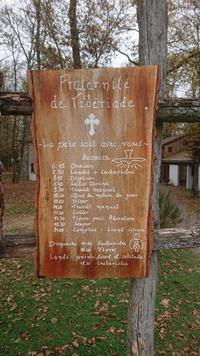 Fraternité
de Tibériade
-La paix soit avec vous-
Horaire
6.45 Oraison
7.30 Laudes + Eucharistie
8.45 Déjeuner
9.30 Lectio Divina
10.30 Travail manuel
12.15 Office du milieu du jour
12.30 Dîner
14.00 Travail manuel
17.00 Goûter
18.00 Vêpres puis Adoration
19.30 Souper
21.00 Complies - Grand silence
Dimanche 11.00 Eucharistie
Vêpres
Lundi: journée désert et solitude
Eucharistie